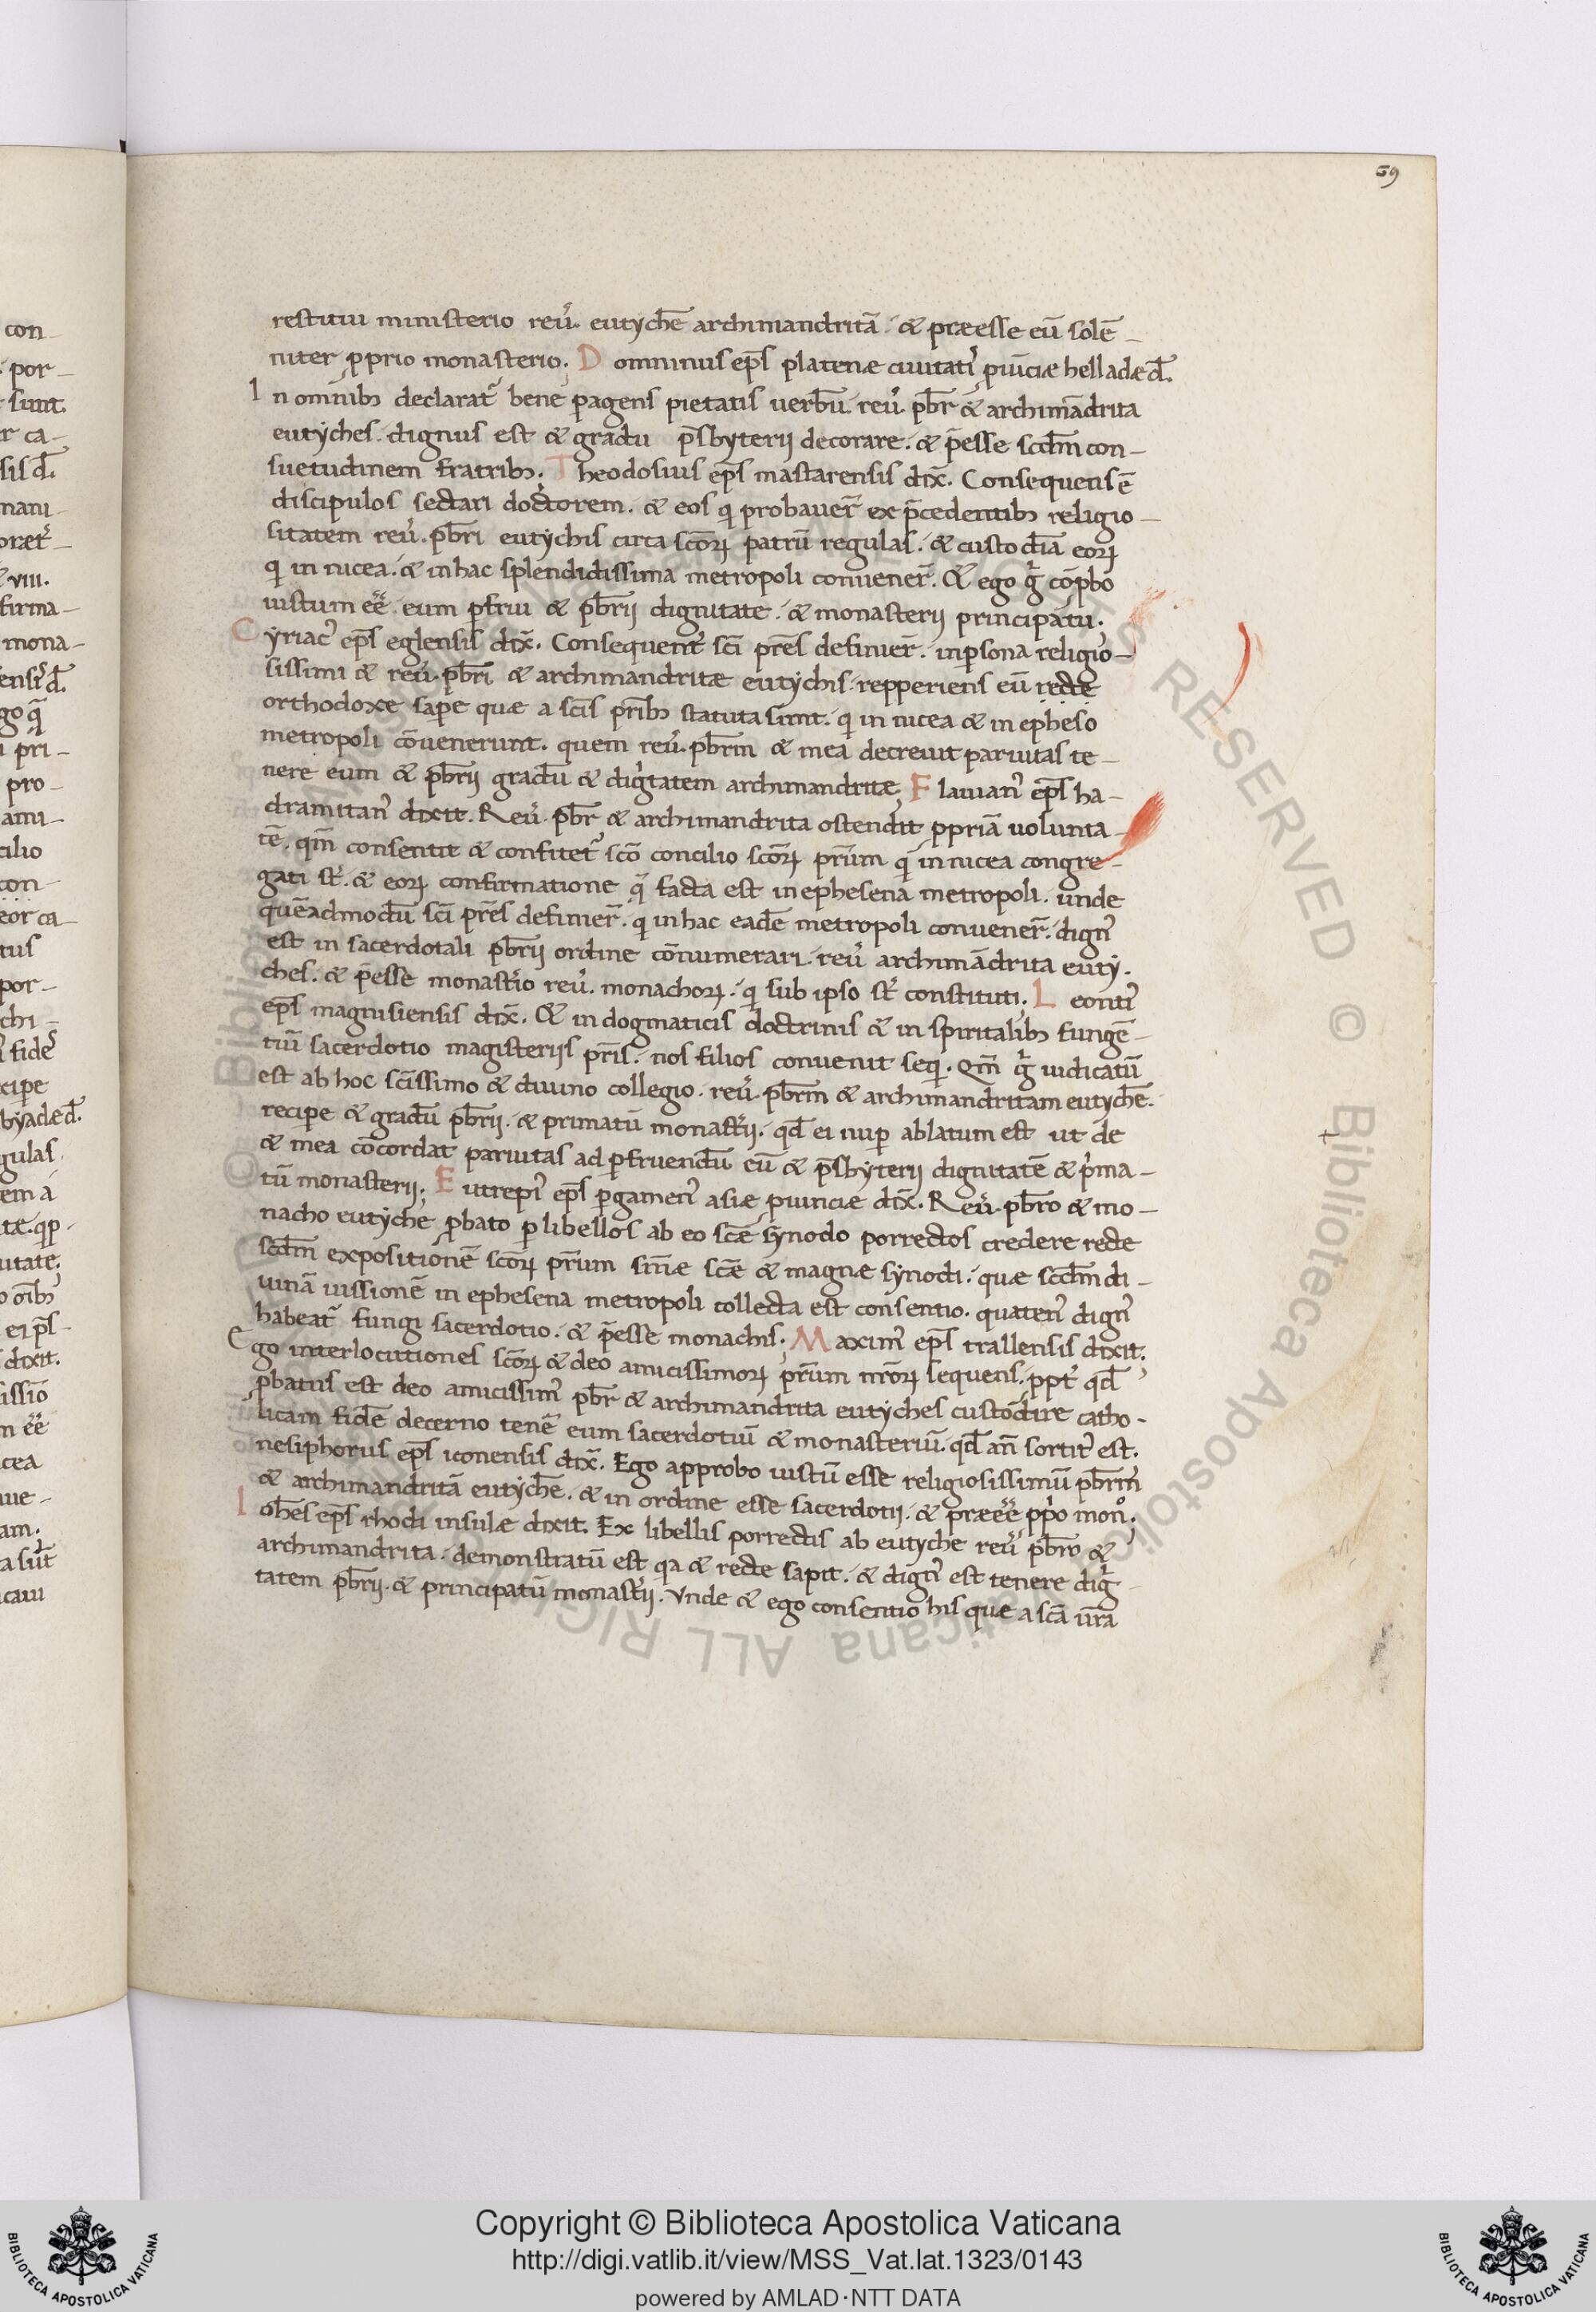 59
restitui ministerio reuͬ. eutychē archimandritā. & præesse eū solē-
niter ꝓprio monasterio. Domninus ep̄s platenæ ciuitatiꝰ ꝓuīciæ helladæ d̄.
In omnibꝫ declaratͬ bene ꝑagens pietatis uerbū. reuͬ. pb̄r & archimādrita
eutyches. dignus est & gradu p̄sbyterii decorare. & p̄esse scd̄m con-
suetudinem fratribꝫ. Theodosius ep̄s mastarensis dix̄. Consequens ē
discipulos sectari doctorem. & eos qi probauer̄ ex p̄cedentibꝫ religio-
sitatem reuͬ. pb̄ri eutychis circa scōꝝ patrū regulas. & custodiā eoꝝ
qi in nicea. & in hac splendidissima metropoli conuener̄. & ego gͥ cōpbo
iustum ee̅. eum ꝑfrui & pb̄rii dignitate. & monasterii principatu.
Cyriacꝰ ep̄s eglensis dix̄. Consequentͬ sc̄i pr̄es definier̄. in ꝑsona religio-
sissimi & reuͬ. pb̄ri & archimandritæ eutychis. repperiens eū recte
orthodoxe sape quæ a sc̄is pr̄ibꝫ statuta sunt. qi in nicea & in epheso
metropoli cōuenerunt. quem reuͬ. pb̄rm & mea decreuit paruitas te-
nere eum & pb̄rii gradū & digͥtatem archimandritæ. Flauianꝰ ep̄s ha-
dramitanꝰ dixit. Reuͬ. pb̄r & archimandrita ostendit ꝓpriā uolunta-
tē. qm̄ consentit & confitetͬ scō concilio scōꝝ pr̄um qi in nicea congre-
gati st̄. & eoꝝ confirmatione q̄ facta est in ephesena metropoli. unde
quēadmodū sc̄i pr̄es definier̄. qi in hac eadē metropoli conuener̄. dignꝰ
est in sacerdotali pb̄rii ordine cōnumerari. reuͬ archimādrita euty.
ches. & p̄esse monastͬio reuͬ. monachoꝝ. qi sub ipso st̄ constituti. Leontiꝰ
ep̄s magnisiensis dix̄. & in dogmaticis doctrinis & in spiritalibꝫ fungē-
tiū sacerdotio magisteriis pr̄is. nos filios conuenit seqi. Qm̄ gͥ iudicatū
est ab hoc sc̄issimo & diuino collegio. reuͬ pb̄rm & archimandritam eutychē.
recipe & gradū pb̄rii. & primatū monastͬii. qd̄ ei nuꝑ ablatum est ut de
& mea cōcordat paruitas ad ꝑfruendū eū & p̄sbyterii dignitatē & pͥma-
tū monasterii. Eutrepiꝰ ep̄s ꝑgamenꝰ asiæ ꝓuinciæ dix̄. Reuͬ. pb̄ro & mo-
nacho eutyche ꝓbato ꝑ libellos ab eo sc̄æ synodo porrectos credere recte
scd̄m expositionē scōꝝ pr̄um sn̄iæ sc̄æ & magnæ synodi. quæ scd̄m di-
uinā iussionē in ephesena metropoli collecta est consentio. quatenꝰ dignꝰ
habeatͬ fungi sacerdotio. & p̄esse monachis. Maximꝰ ep̄s trallensis dixit.
Ego interlocutiones scōꝝ & deo amicissimoꝝ pr̄um nr̄oꝝ sequens. ꝓptͬ qd̄
ꝓbatus est deo amicissimꝰ pb̄r & archimandrita eutyches custodire catho-
licam fidē decerno tenē eum sacerdotiū & monasteriū. qd̄ an̄ sortitꝰ est.
nesiphorus ep̄s iconensis dix̄. Ego approbo iustū esse religiosissimū pb̄rm
& archimandritā eutychē. & in ordine esse sacerdotii. & præee̅ ꝓpͥo monͦ.
Ioh̄es ep̄s rhodi insulæ dixit. Ex libellis porrectis ab eutyche reuͬ pb̄ro &
archimandrita. demonstratū est qa & recte sapit. & dignꝰ est tenere digͥ-
tatem pb̄rii. & principatū monastͬii. Vnde & ego consentio his quæ a sc̄a ur̄a
Copyright © Biblioteca Apostolica Vaticana
http://digi.vatlib.it/view/MSS_Vat.lat.1323/0143
powered by AMLAD·NTT DATA